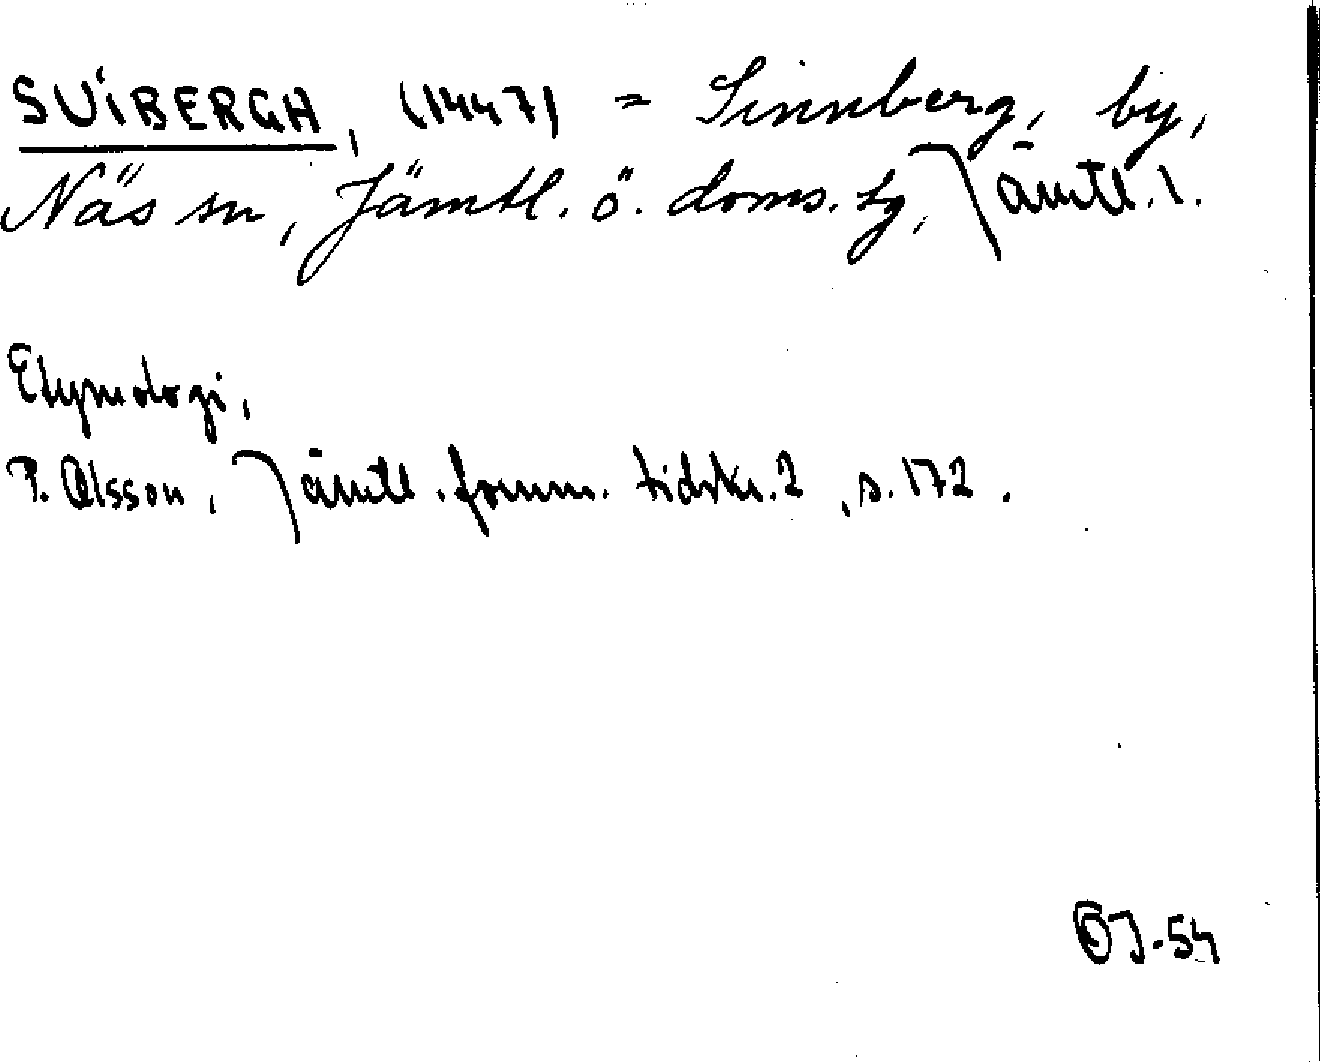 SUIBERGH, (1447) = Sinnberg, by,
Näs sn, Jämtl. ö. doms. sg, Jämtl. l.
Etymologi,
P. Olsson, Jämtl. fornm. tidskr. 2, s. 172.
OJ-54